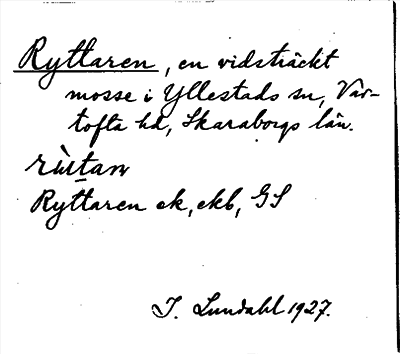 Ryttaren, en vidsträckt
mosse i Yllestads sn, Var-
tofta hd, Skaraborgs län.
Ryttaren ek, ekb, GS
I. Lundahl 1927.